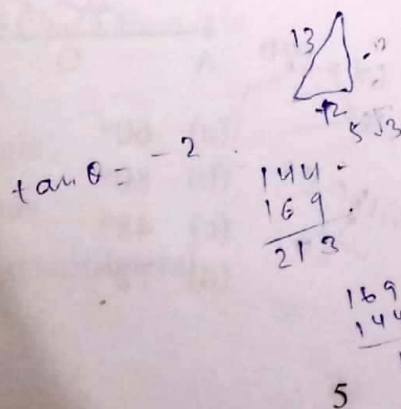 13
12
5
tan θ = - 2
144
169
213
169
144
5